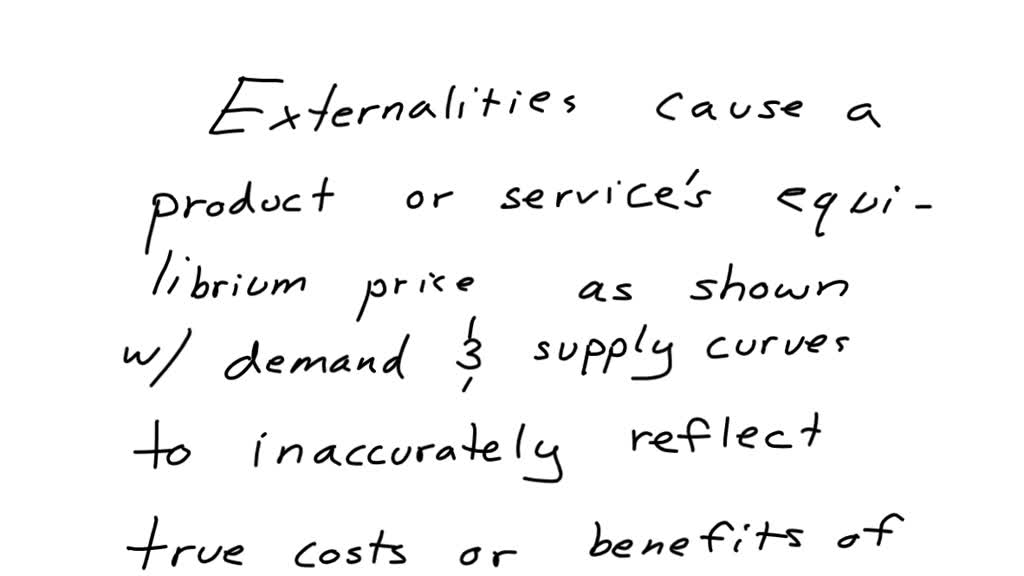 Externalities cause a
product or service's equi-
librium price as shown
w/ demand & supply curves
to inaccurately reflect
true costs or benefits of